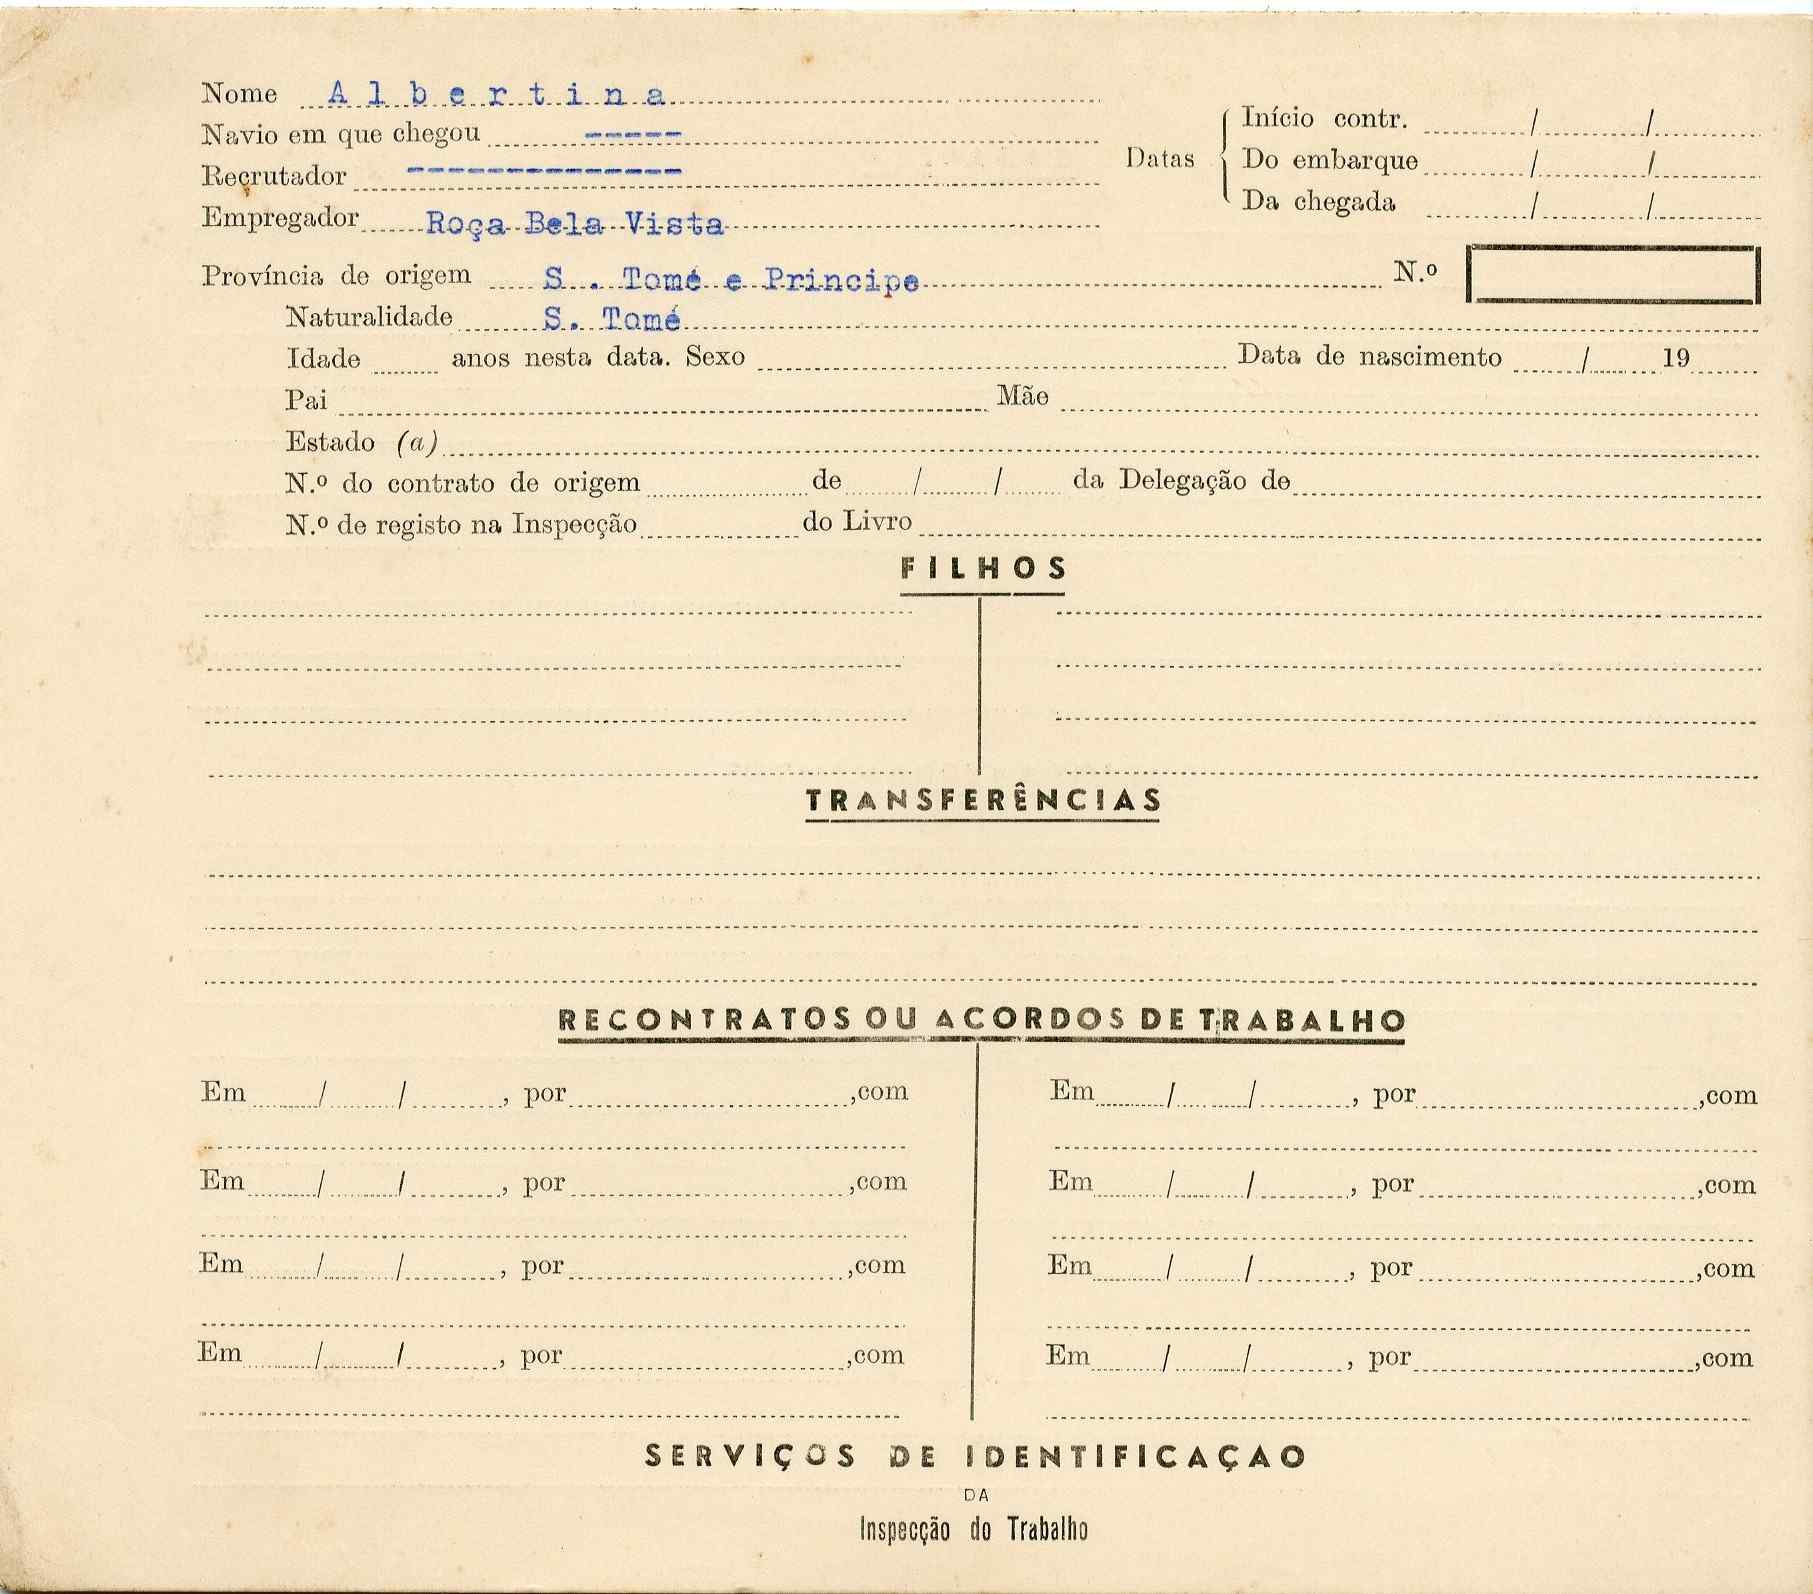 Nome A l b e r t i n a
Navio em que chegou -----
Recrutador --------------
Empregador Roça Bela Vista
Datas
Início contr. / /
Do embarque / /
Da chegada / /
Província de origem S . Tomé e Principe N.º
Naturalidade S. Tomé
Idade anos nesta data. Sexo Data de nascimento / 19
Pai Mãe
Estado (a)
N.º do contrato de origem de / / da Delegação de
N.º de registo na Inspecção do Livro
FILHOS
TRANSFERÊNCIAS
RECONTRATOS OU ACORDOS DE TRABALHO
Em / / , por ,com
Em / / , por ,com
Em / / , por ,com
Em / / , por ,com
Em / / , por ,com
Em / / , por ,com
Em / / , por ,com
Em / / , por ,com
SERVIÇOS DE IDENTIFICAÇAO
DA
Inspecção do Trabalho